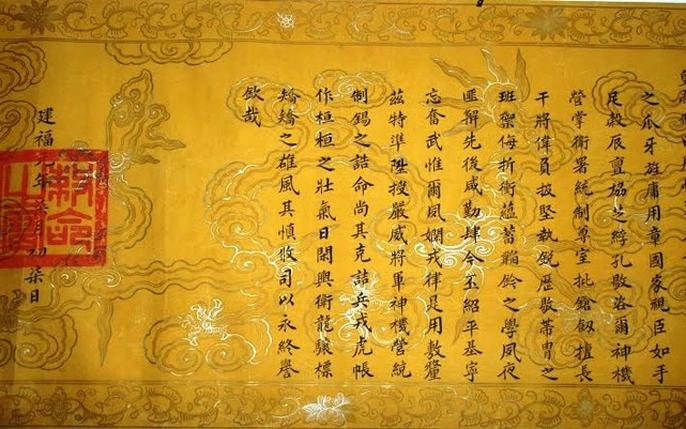 之爪牙旌庸用章國家視臣如手
足穀辰亶協芝綍孔敭咨爾神機
營掌衛署統制尊室批鎗釰擅長
干將偉負披堅執銳歷敭蕃冑之
班禦侮折衝蘊蓄韜鈐之學夙夜
匪懈先後咸勤肆今丕紹平基寧
忘奮武惟爾夙嫻戎律是用敷釐
茲特準陞授嚴威將軍神機營統
制錫之誥命尚其克詰兵戎虎帳
作桓桓之壯氣日閑輿衛龍驤標
矯矯之雄風其慎攸司以永終譽
欽哉
建福元年月初柒日
制命之寶